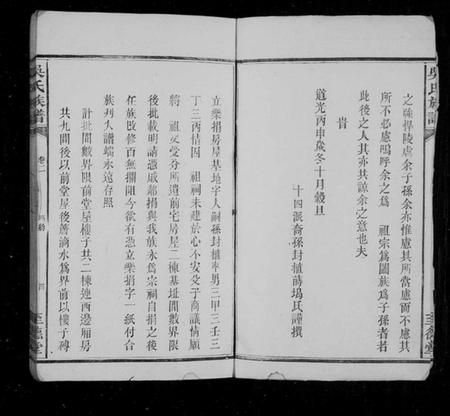 吳氏族譜
之強悍陵虐余子孫余亦惟慮其所當慮而不慮其
所不必慮嗚呼余之為 祖宗為闔族為子孫者若
此後之人其亦共諒余之意也夫
旹
道光丙申歲冬十月穀旦
十四派裔孫封植蒔塢氏謹撰
至德堂
立樂捐房屋基地字人嗣孫封植率男三甲三壬三
丁三丙情因 祖祠未建於心不安父子商議情願
將 祖父受分所遺前宅房屋二棟基址間數界限
後批載明請憑戚鄰捐與我族永為宗祠自捐之後
任族改修百無攔阻今欲有憑立樂捐字一紙付合
族刋入譜端永遠存照
計批間數界限前堂屋樓子共二棟連西邊廂房
共九間後以前堂屋後簷滴水為界前以樓子磚
吳氏族譜
卷二
四
至德堂